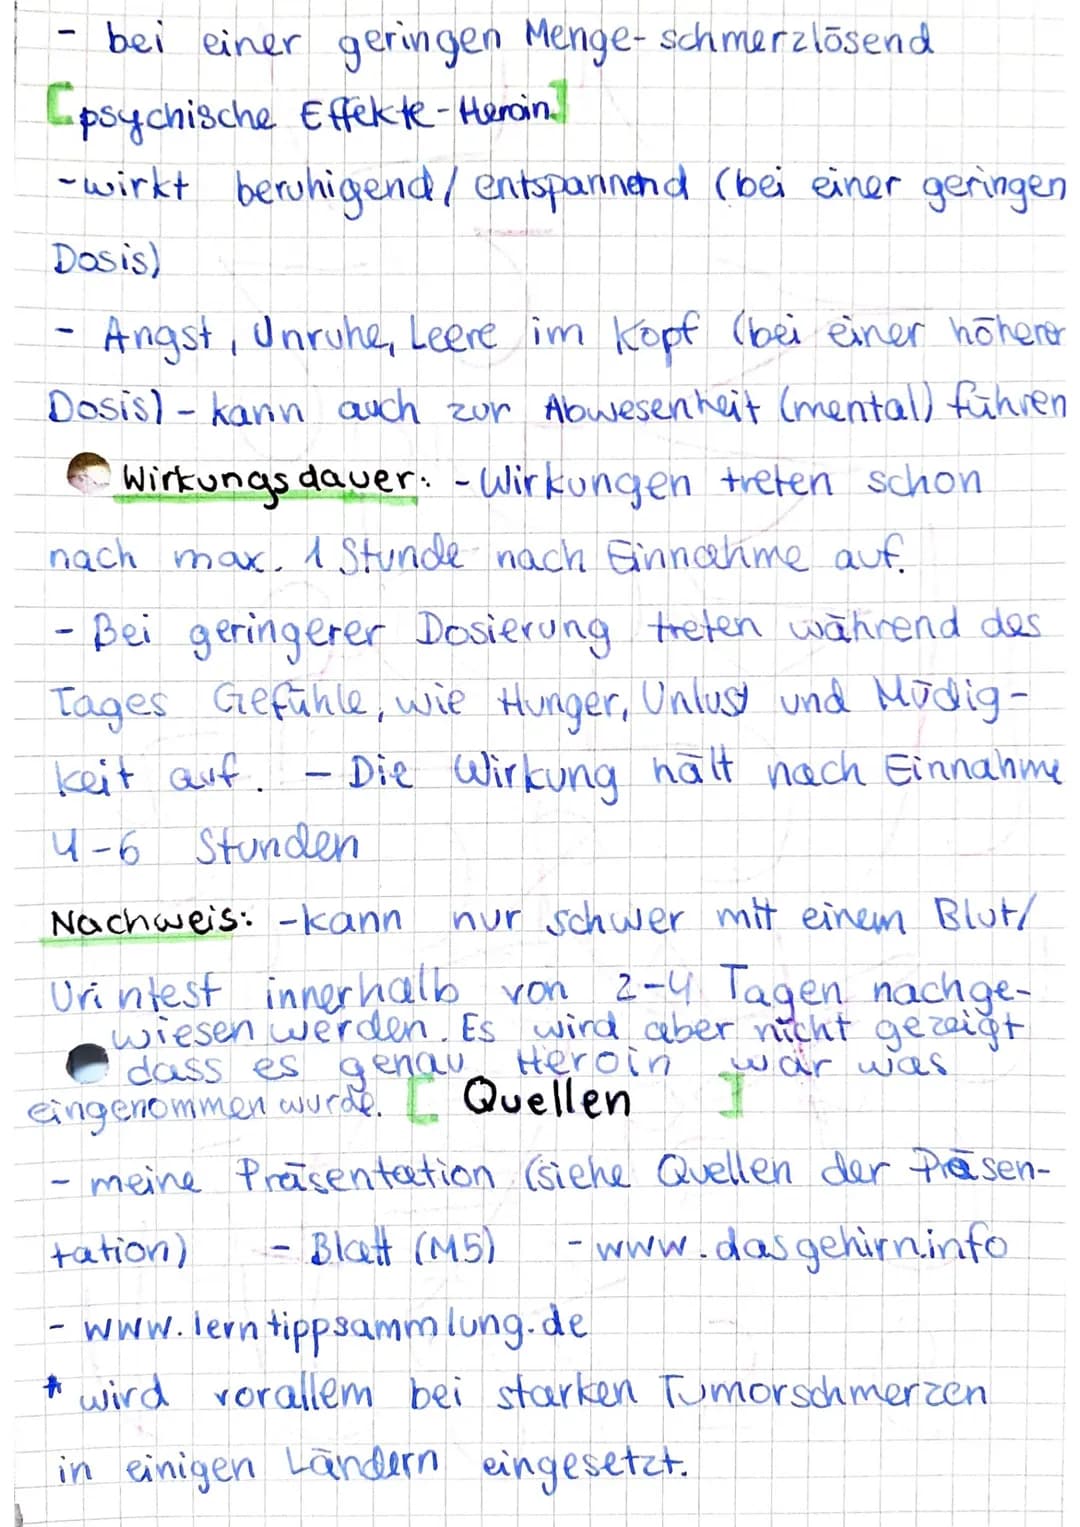 - bei einer geringen Menge - schmerzlösend
[psychische Effekte - Heroin]
- wirkt beruhigend / entspannend (bei einer geringen
Dosis)
- Angst, Unruhe, Leere im Kopf (bei einer höherer
Dosis) - kann auch zur Abwesenheit (mental) führen
Wirkungsdauer: - Wirkungen treten schon
nach max. 1 Stunde nach Einnahme auf.
- Bei geringerer Dosierung treten während des
Tages Gefühle, wie Hunger, Unlust und Müdig-
keit auf. - Die Wirkung hält nach Einnahme
4-6 Stunden
Nachweis: - kann nur schwer mit einem Blut/
Urintest innerhalb von 2-4 Tagen nachge-
wiesen werden. Es wird aber nicht gezeigt
dass es genau Heroin war was
eingenommen wurde. [Quellen]
- meine Präsentation (siehe Quellen der Präsen-
tation) - Blatt (M5) - www.dasgehirn.info
- www.lerntippsammlung.de
* wird vorallem bei starken Tumorschmerzen
in einigen Ländern eingesetzt.